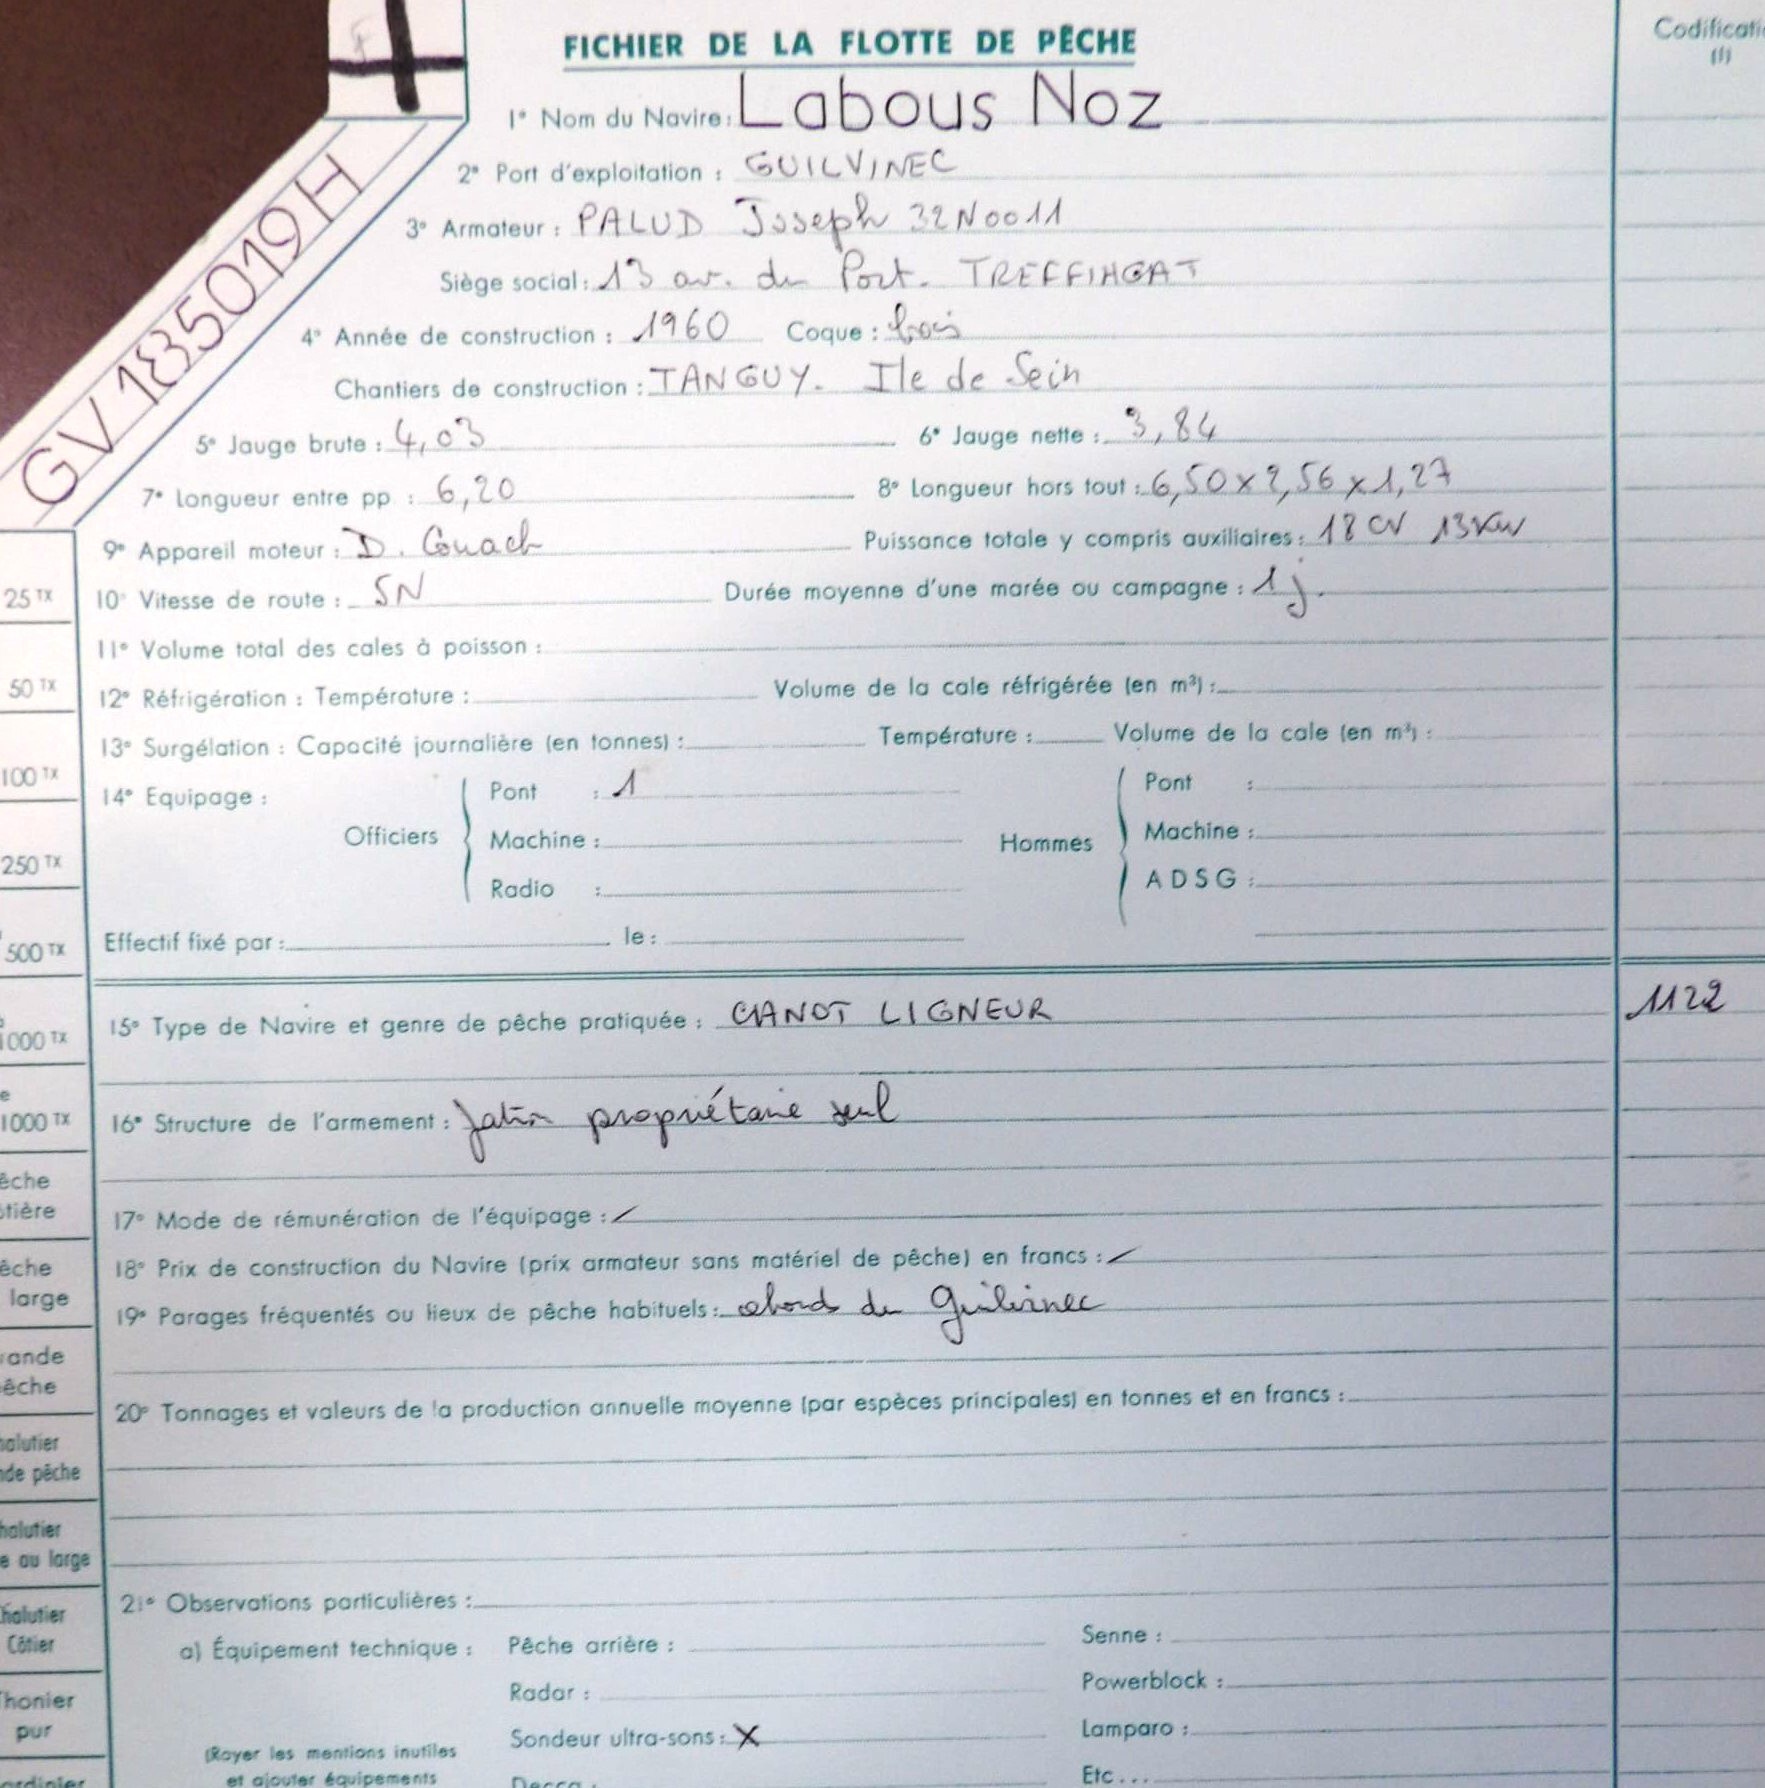 FICHIER DE LA FLOTTE DE PÊCHE
Codificati
(1)
GV 185019 H
1° Nom du Navire : Labous Noz
2° Port d'exploitation : GUILVINEC
3° Armateur : PALUD Joseph 32N0011
Siège social : 13 av. du Port. TREFFIAGAT
4° Année de construction : 1960 Coque : bois
Chantiers de construction : TANGUY. Ile de Sein
5° Jauge brute : 4,03 6° Jauge nette : 3,84
7° Longueur entre pp : 6,20 8° Longueur hors tout : 6,50 x 2,56 x 1,27
9° Appareil moteur : D. Couach Puissance totale y compris auxiliaires : 18 CV 13 KW
10° Vitesse de route : 5N Durée moyenne d'une marée ou campagne : 1 j.
11° Volume total des cales à poisson :
12° Réfrigération : Température : Volume de la cale réfrigérée (en m³) :
13° Surgélation : Capacité journalière (en tonnes) : Température : Volume de la cale (en m³) :
14° Equipage : Officiers Pont : 1 Hommes Pont :
Machine : Machine :
Radio : A D S G :
Effectif fixé par : le :
15° Type de Navire et genre de pêche pratiquée : CANOT LIGNEUR 1122
16° Structure de l'armement : patron propriétaire seul
17° Mode de rémunération de l'équipage : /
18° Prix de construction du Navire (prix armateur sans matériel de pêche) en francs : /
19° Parages fréquentés ou lieux de pêche habituels : abords du Guilvinec
20° Tonnages et valeurs de la production annuelle moyenne (par espèces principales) en tonnes et en francs :
21° Observations particulières :
a) Équipement technique : Pêche arrière : Senne :
Radar : Powerblock :
Sondeur ultra-sons : X Lamparo :
(Rayer les mentions inutiles
et ajouter équipements Decca : Etc...
25 TX
50 TX
100 TX
250 TX
500 TX
1000 TX
e
1000 TX
êche
ôtière
êche
large
rande
êche
halutier
nde pêche
halutier
e au large
Chalutier
Côtier
Thonier
pur
ardinier